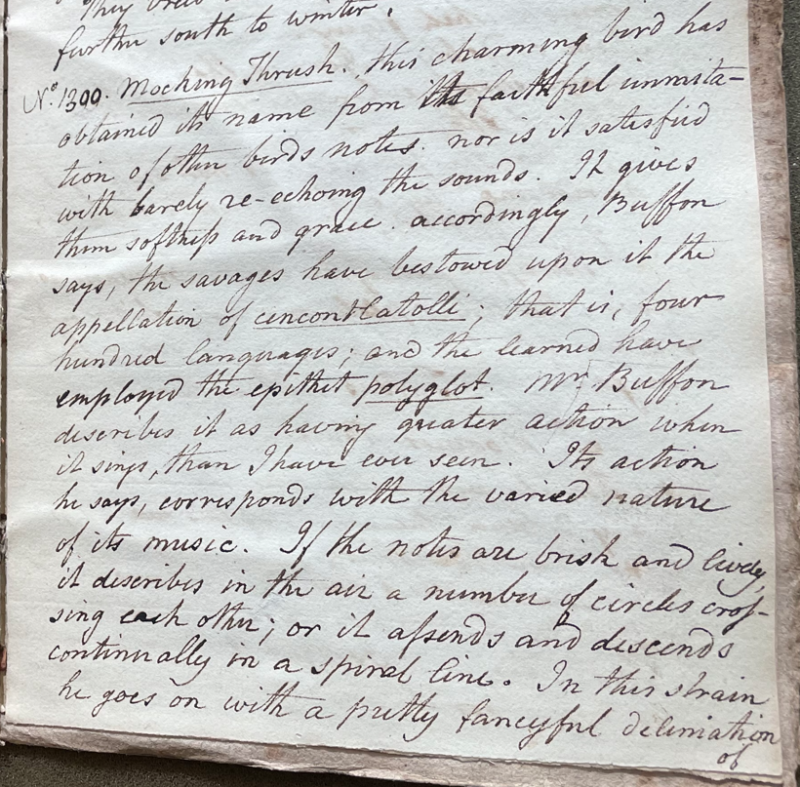 They breed
further south to winter.
No. 1300. Mocking Thrush. this charming bird has
obtained its name from its faithful immita-
tion of other birds notes. nor is it satisfied
with barely re-echoing the sounds. It gives
them softness and grace. accordingly, Buffon
says, the savages have bestowed upon it the
appellation of cencontlatolli; that is, four
hundred languages; and the learned have
employed the epithet polyglot. Mr. Buffon
describes it as having greater action when
it sings, than I have ever seen. Its action
he says, corresponds with the varied nature
of its music. If the notes are brisk and lively,
it describes in the air a number of circles cros-
sing each other; or it assends and descends
continually in a spiral line. In this strain
he goes on with a pretty fancyful deliniation
of